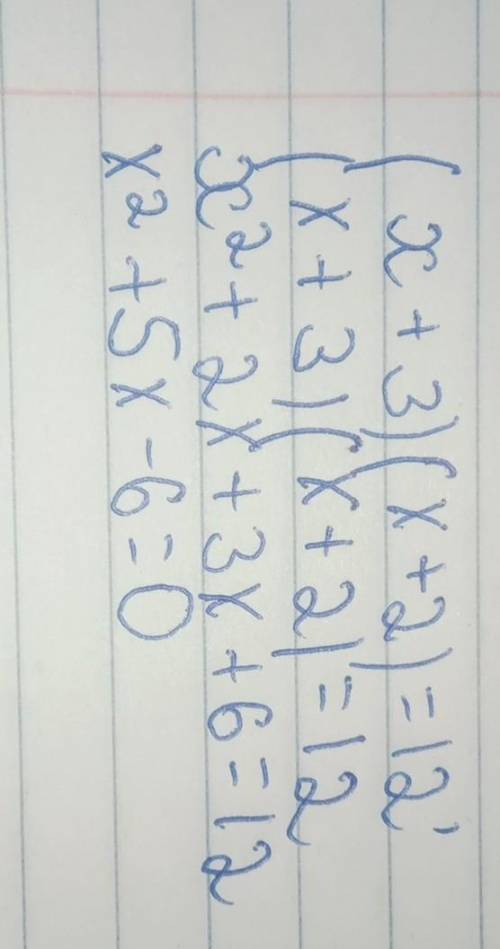 (x+3)(x+2)=12'
(x+3)(x+2)=12
x²+2x+3x+6=12
x²+5x-6=0